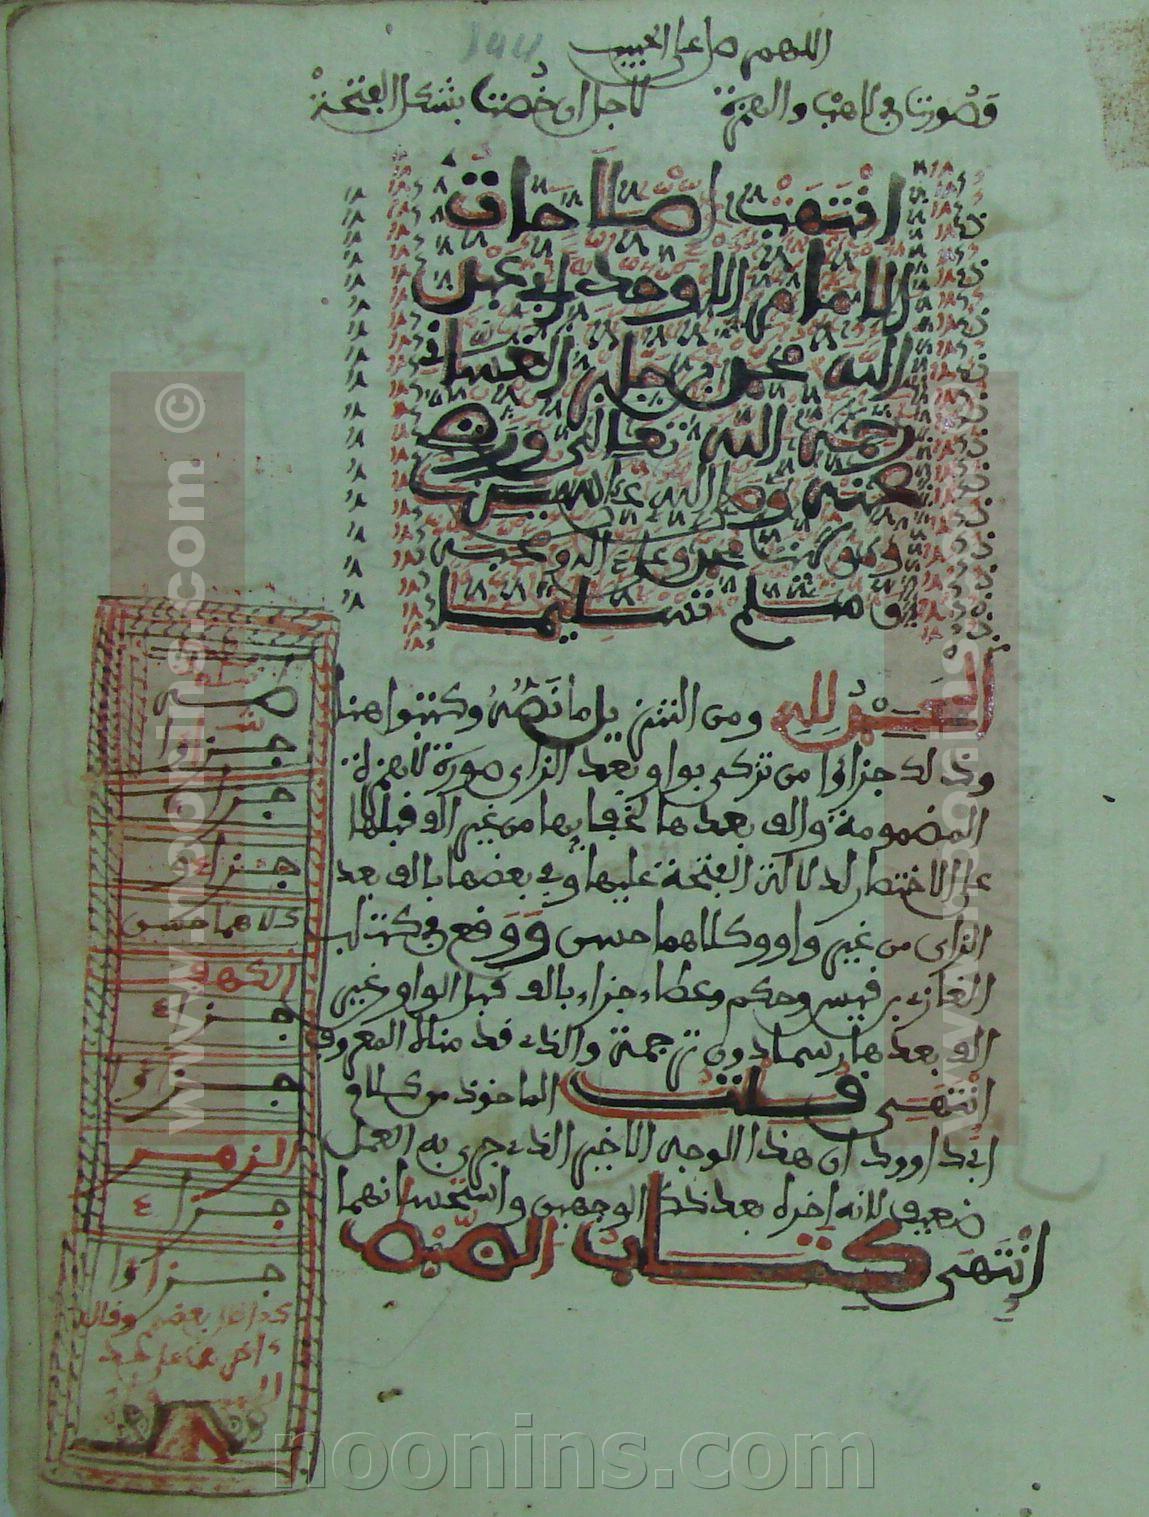 اللهم صل على الحبيب
وصورت في لاهب والهمزة لاجل ان خصتا بشكل الفتحة
انتهت اصلاحات
الامام الاوحد ابي عبد
الله محمد بن جابر الغساني
رحمه الله تعالى ورضي
عنه وصلى الله على سيدنا
ومولانا محمد وعلى اله وصحبه
وسلم تسليما
الحمد لله ومن التنزيل ما نصه وكتبوا هنا
وذلك جزاؤا من تزكى بواو بعد الزاى صورة للهمزة
المضمومة والف بعدها كخفايها من غير الف قبلها
على الاختصار لدلالة الفتحة عليها وفي بعضها بالف بعد
الزاى من غير واو وكلاهما حسن ووقع في كتاب
الغازي بن قيس وحكم وعطاء جزاء بالف قبل الواو وغير
الف بعدها رسما دون ترجمة والذي قدمناه المعروف
انتهى قلت الماخوذ من كلام
ابي داوود ان هذا الوجه الاخير الذي جرى به العمل
ضعيف لانه اخره بعد ذكر الوجهين واستحسانهما
انتهى كتاب
طه
جزاوا
جزاء
كلاهما حسن
الكهف
جزاء
جزاوا
الزمر
جزاء
جزاوا
www.noonins.com ©
www.noonins
noonins.com